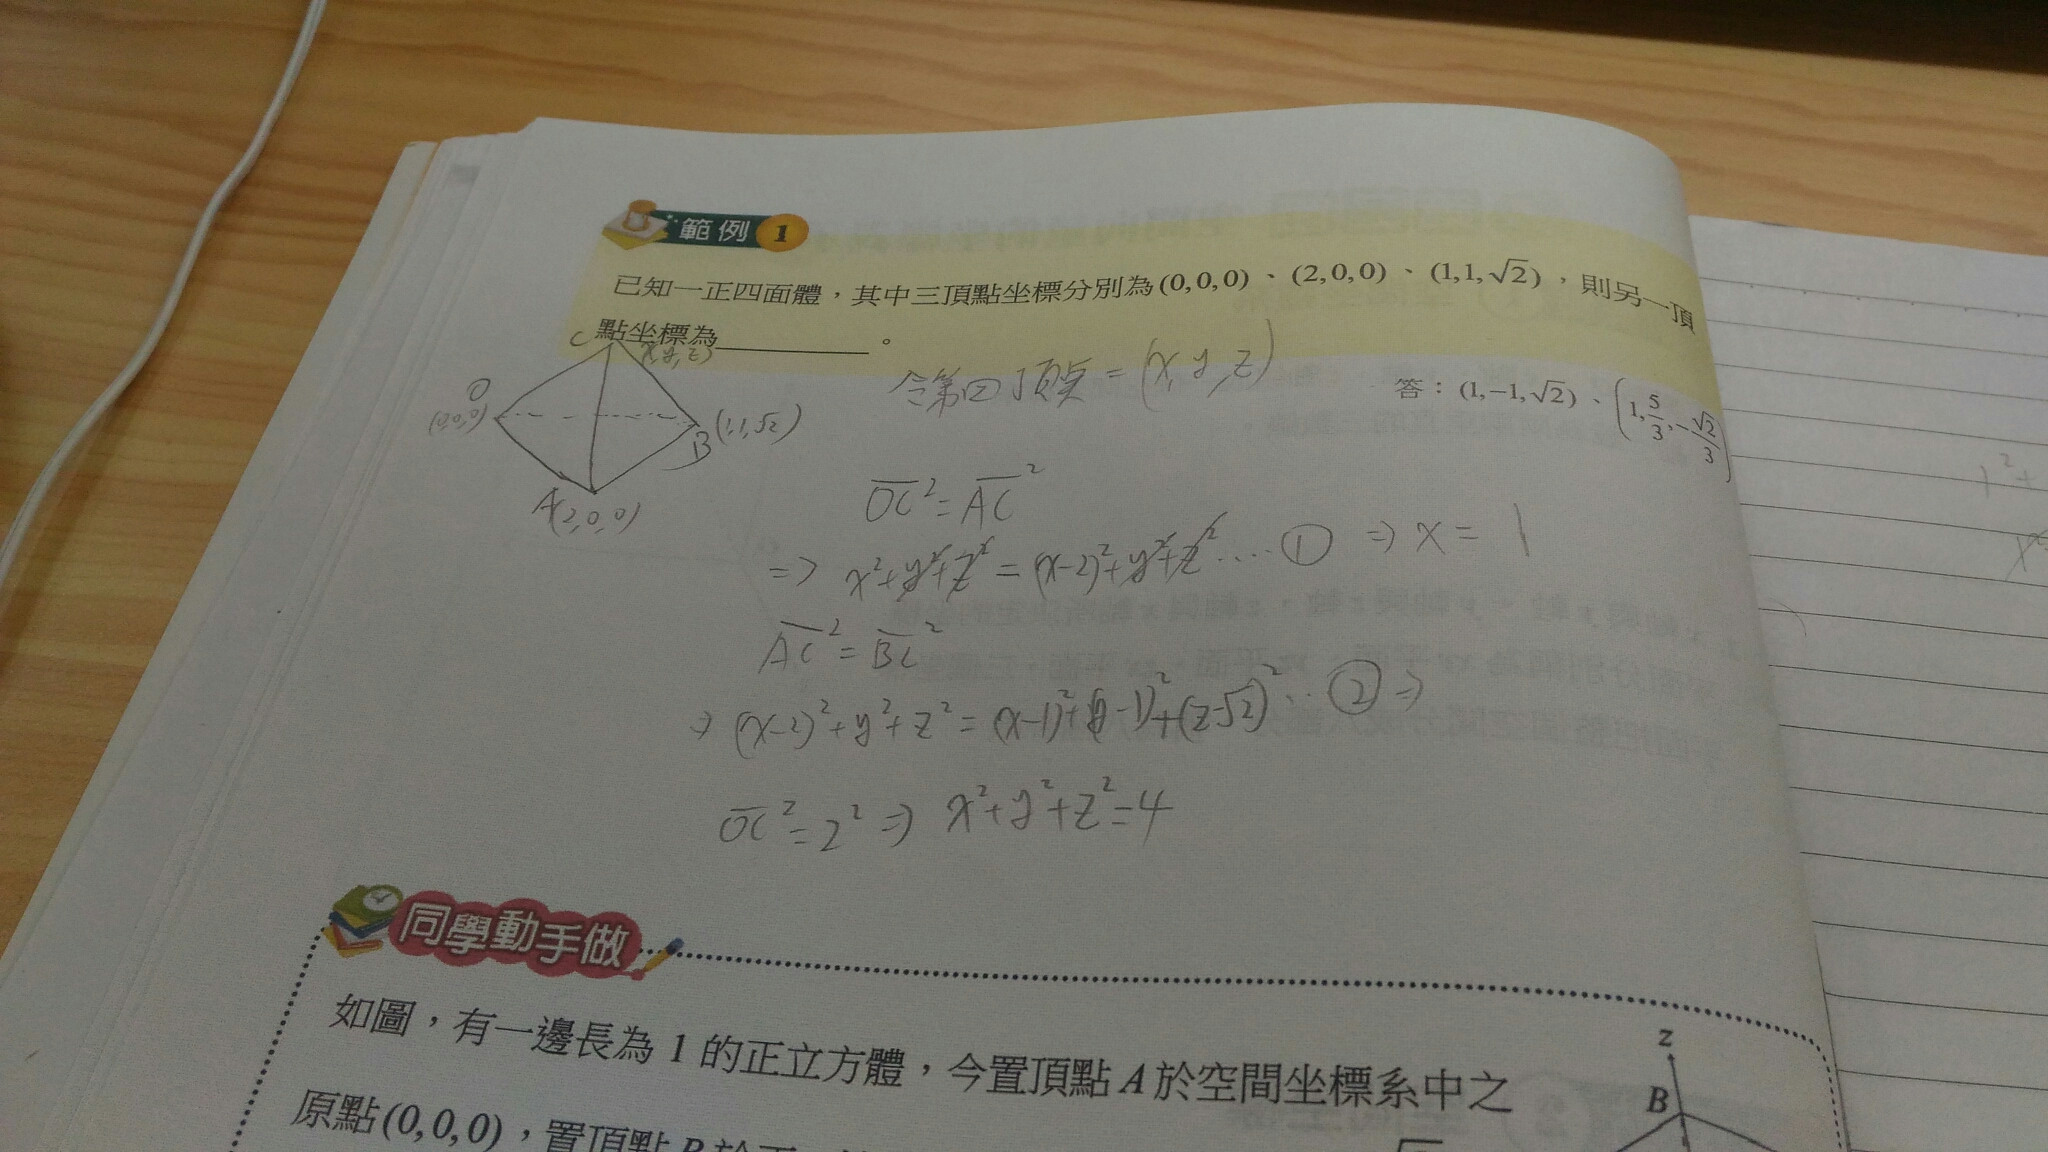 範例 1
已知一正四面體，其中三頂點坐標分別為(0,0,0)、(2,0,0)、(1,1,√2)，則另一頂
點坐標為＿＿＿＿＿。
答：(1,-1,√2)、(1,5/3,-√2/3)
令第四頂点=(x,y,z)
C (x,y,z)
O (0,0,0)
B (1,1,√2)
A(2,0,0)
OC²=AC²
=> x²+y²+z²=(x-2)²+y²+z²....① => x=1
AC²=BC²
=> (x-2)²+y²+z²=(x-1)²+(y-1)²+(z-√2)²...② =>
OC²=2² => x²+y²+z²=4
同學動手做
如圖，有一邊長為 1 的正立方體，今置頂點 A 於空間坐標系中之
原點(0,0,0)，置頂點 B 於正
z
B